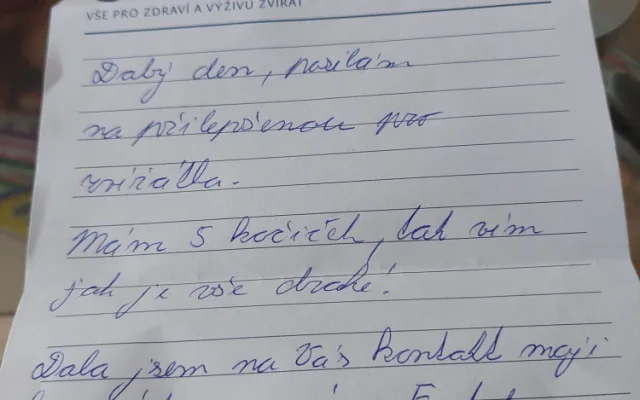 VŠE PRO ZDRAVÍ A VÝŽIVU ZVÍŘAT
Dobrý den, posílám
na přilepšenou pro
zvířátka.
Mám 5 kočiček, tak vím
jak je vše drahé!
Dala jsem na Vás kontakt mojí